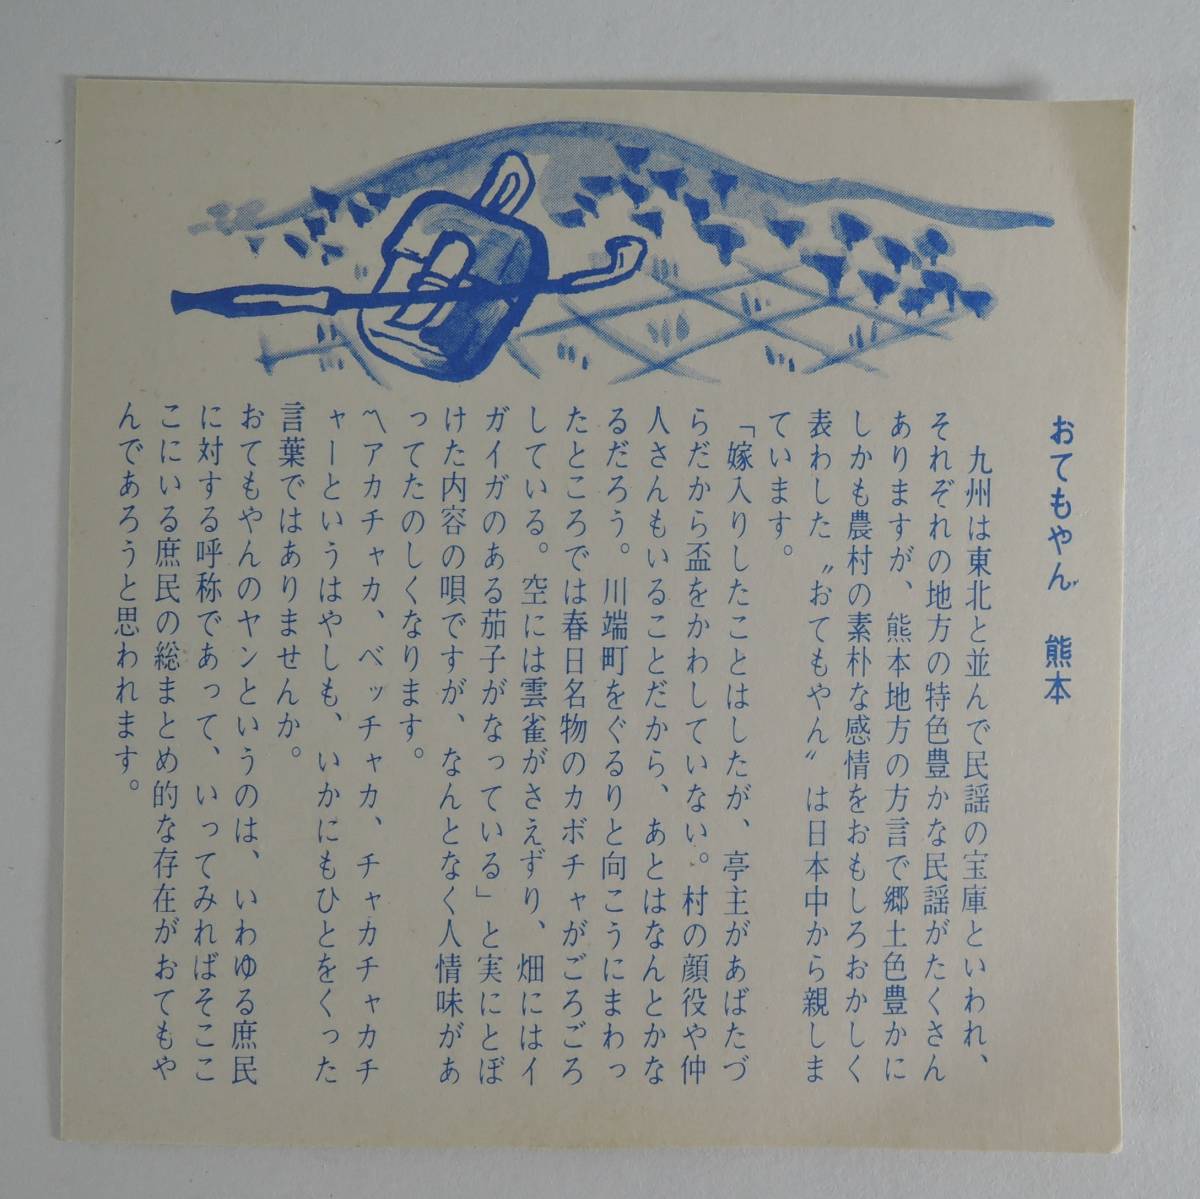 おてもやん　熊本
九州は東北と並んで民謡の宝庫といわれ、
それぞれの地方の特色豊かな民謡がたくさん
ありますが、熊本地方の方言で郷土色豊かに
しかも農村の素朴な感情をおもしろおかしく
表わした〝おてもやん〟は日本中から親しま
ています。
「嫁入りしたことはしたが、亭主があばたづ
らだから盃をかわしていない。村の顔役や仲
人さんもいることだから、あとはなんとかな
るだろう。川端町をぐるりと向こうにまわっ
たところでは春日名物のカボチャがごろごろ
している。空には雲雀がさえずり、畑にはイ
ガイガのある茄子がなっている」と実にとぼ
けた内容の唄ですが、なんとなく人情味があ
ってたのしくなります。
〽アカチャカ、ベッチャカ、チャカチャカチ
ャーというはやしも、いかにもひとをくった
言葉ではありませんか。
おてもやんのヤンというのは、いわゆる庶民
に対する呼称であって、いってみればそここ
こにいる庶民の総まとめ的な存在がおてもや
んであろうと思われます。